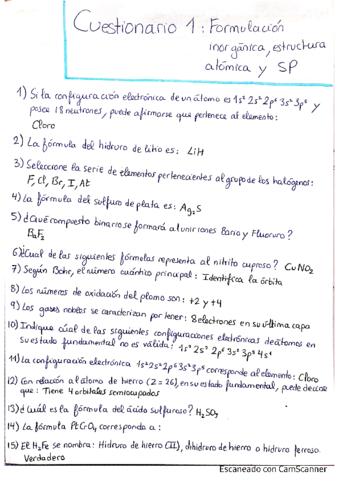 Cuestionario 1: Formulación
inorgánica, estructura
atómica y SP
1) Si la configuración electrónica de un átomo es 1s² 2s² 2p⁶ 3s² 3p⁵ y
posee 18 neutrones, puede afirmarse que pertenece al elemento:
Cloro
2) La fórmula del hidruro de litio es: LiH
3) Seleccione la serie de elementos pertenecientes al grupo de los halógenos:
F, Cl, Br, I, At
4) La fórmula del sulfuro de plata es: Ag₂S
5) ¿Qué compuesto binario se formará al unir iones Bario y Fluoruro?
BaF₂
6) ¿Cual de las siguientes fórmulas representa al nitrito cuproso? CuNO₂
7) Según Bohr, el número cuántico principal: Identifica la órbita
8) Los números de oxidación del plomo son: +2 y +4
9) Los gases nobles se caracterizan por tener: 8 electrones en su última capa
10) Indique cúal de las siguientes configuraciones eletrónicas de átomos en
su estado fundamental no es válida: 1s² 2s² 2p⁶ 3s² 3p⁵ 4s¹
11) La configuración electrónica 1s² 2s² 2p⁶ 3s² 3p⁵ corresponde al elemento: Cloro
12) Con relación al átomo de hierro (2=26), en su estado fundamental, puede decirse
que: Tiene 4 orbitales semiocupados
13) ¿Cuál es la fórmula del ácido sulfuroso? H₂SO₃
14) La fórmula PtCrO₄ corresponde a:
15) El H₂Fe se nombra: Hidruro de hierro (II), dihidruro de hierro o hidruro ferroso.
Verdadero
Escaneado con CamScanner